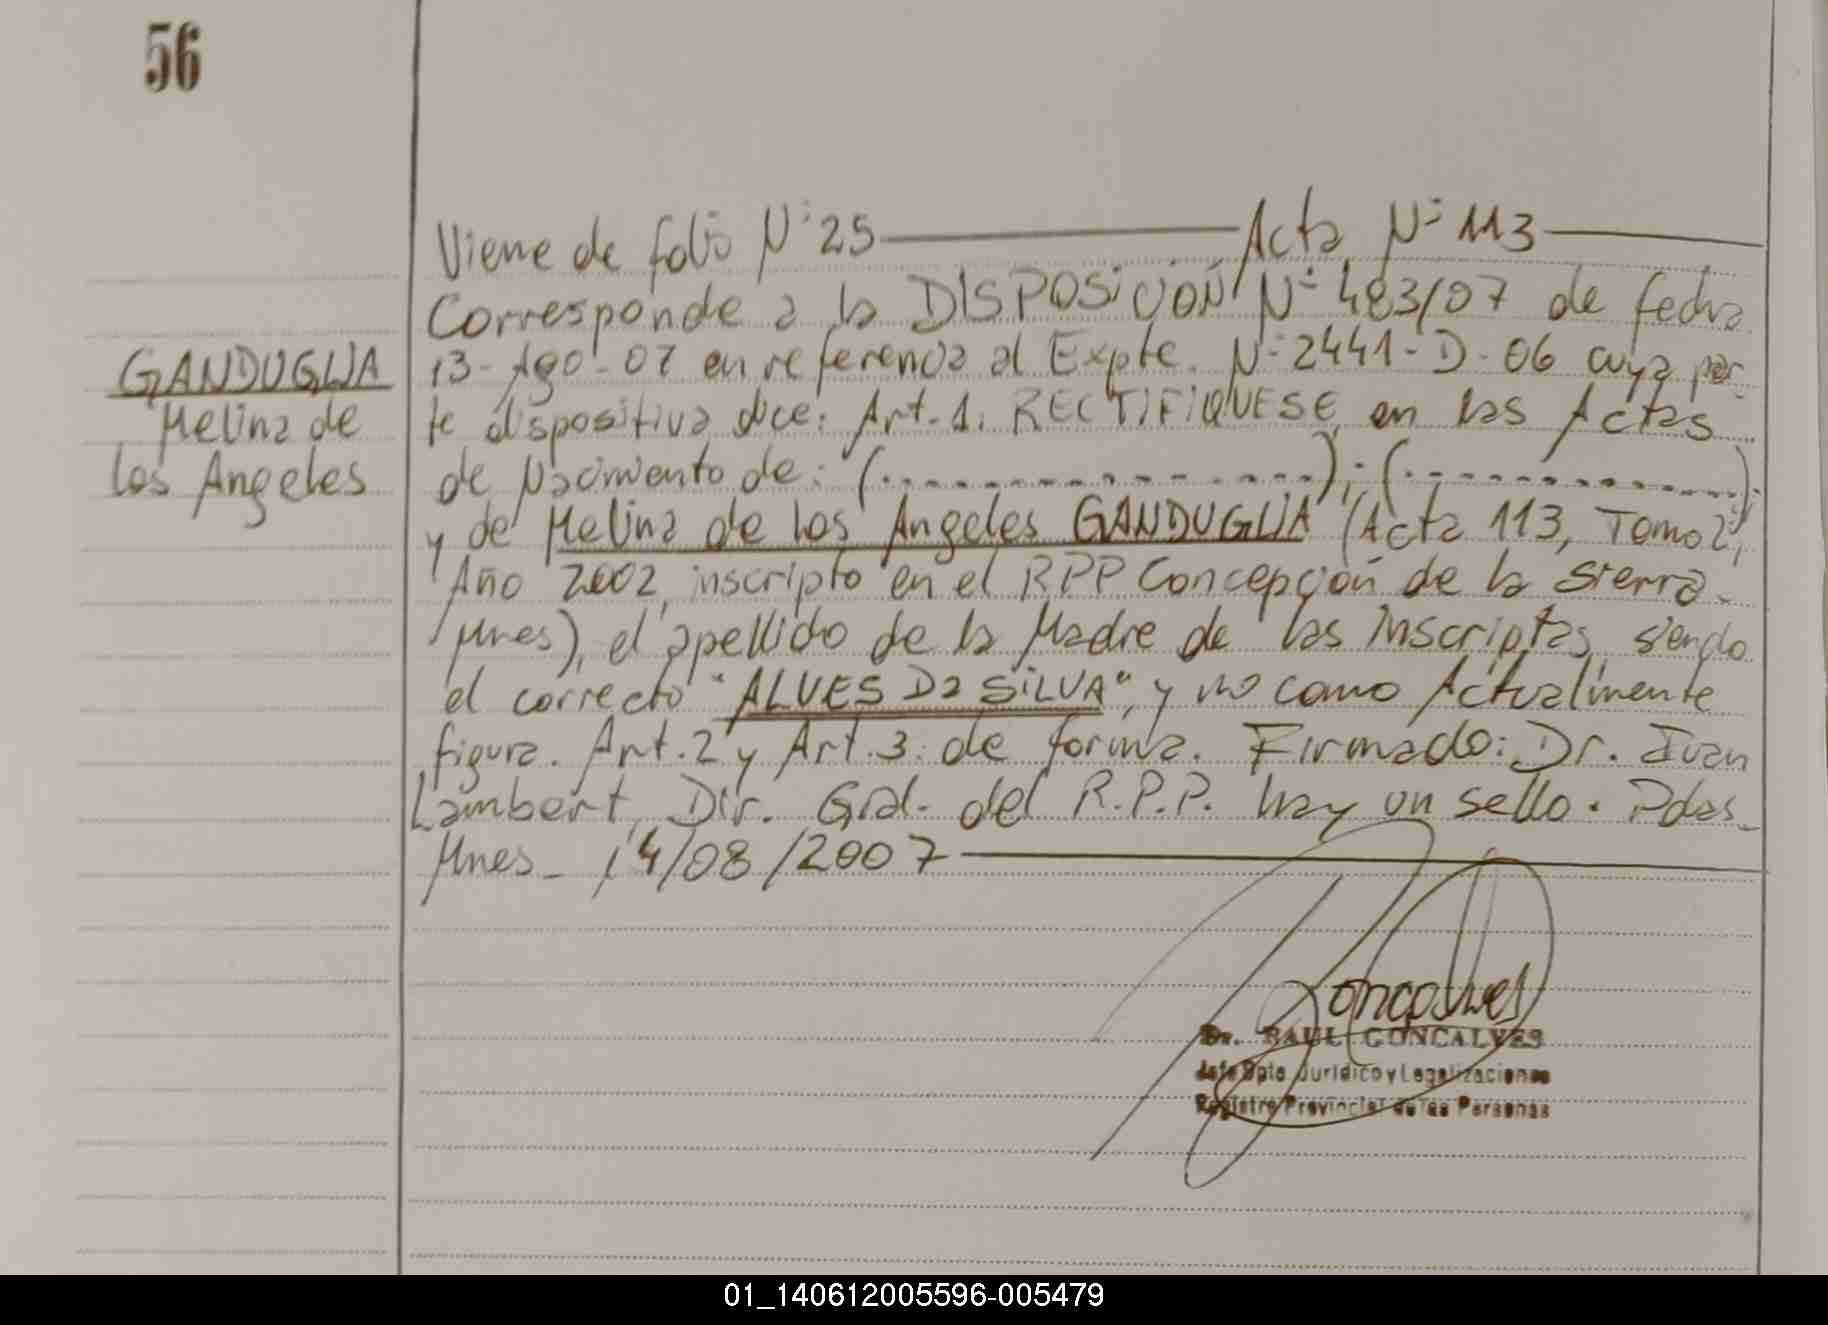 56
Viene de folio Nº 25 ——— Acta Nº 113 ———
Corresponde a la DISPOSICIÓN Nº 483/07 de fecha
GANDUGLIA
Melina de
los Angeles
13-Ago-07 en referencia al Expte. Nº 2441-D-06 cuya par
te dispositiva dice: Art. 1: RECTIFIQUESE en las Actas
de Nacimiento de: (..............); (..............)
y de Melina de los Angeles GANDUGLIA (Acta 113, Tomo 2,
Año 2002, inscripto en el RPP Concepción de la Sierra-
Mnes), el apellido de la Madre de las inscriptas, siendo
el correcto "ALVES Da SiLVA", y no como Actualmente
figura. Art. 2 y Art. 3: de forma. Firmado: Dr. Ivan
Lambert, Dir. Gral. del R.P.P. hay un sello. Pdas-
Mnes- 14/08/2007 ———
Goncalves
Dr. RAUL GONCALVES
Jefe Dpto. Jurídico y Legalizaciones
Registro Provincial de las Personas
01_140612005596-005479